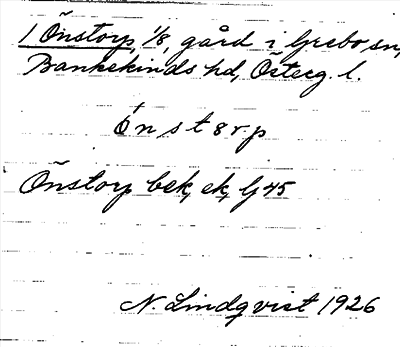 1 Önstorp, 1/8, gård i Grebo sn,
Bankekinds hd, Österg. l.
ó n s t 8 r p
Önstorp bek, ek, G 45
N. Lindqvist 1926